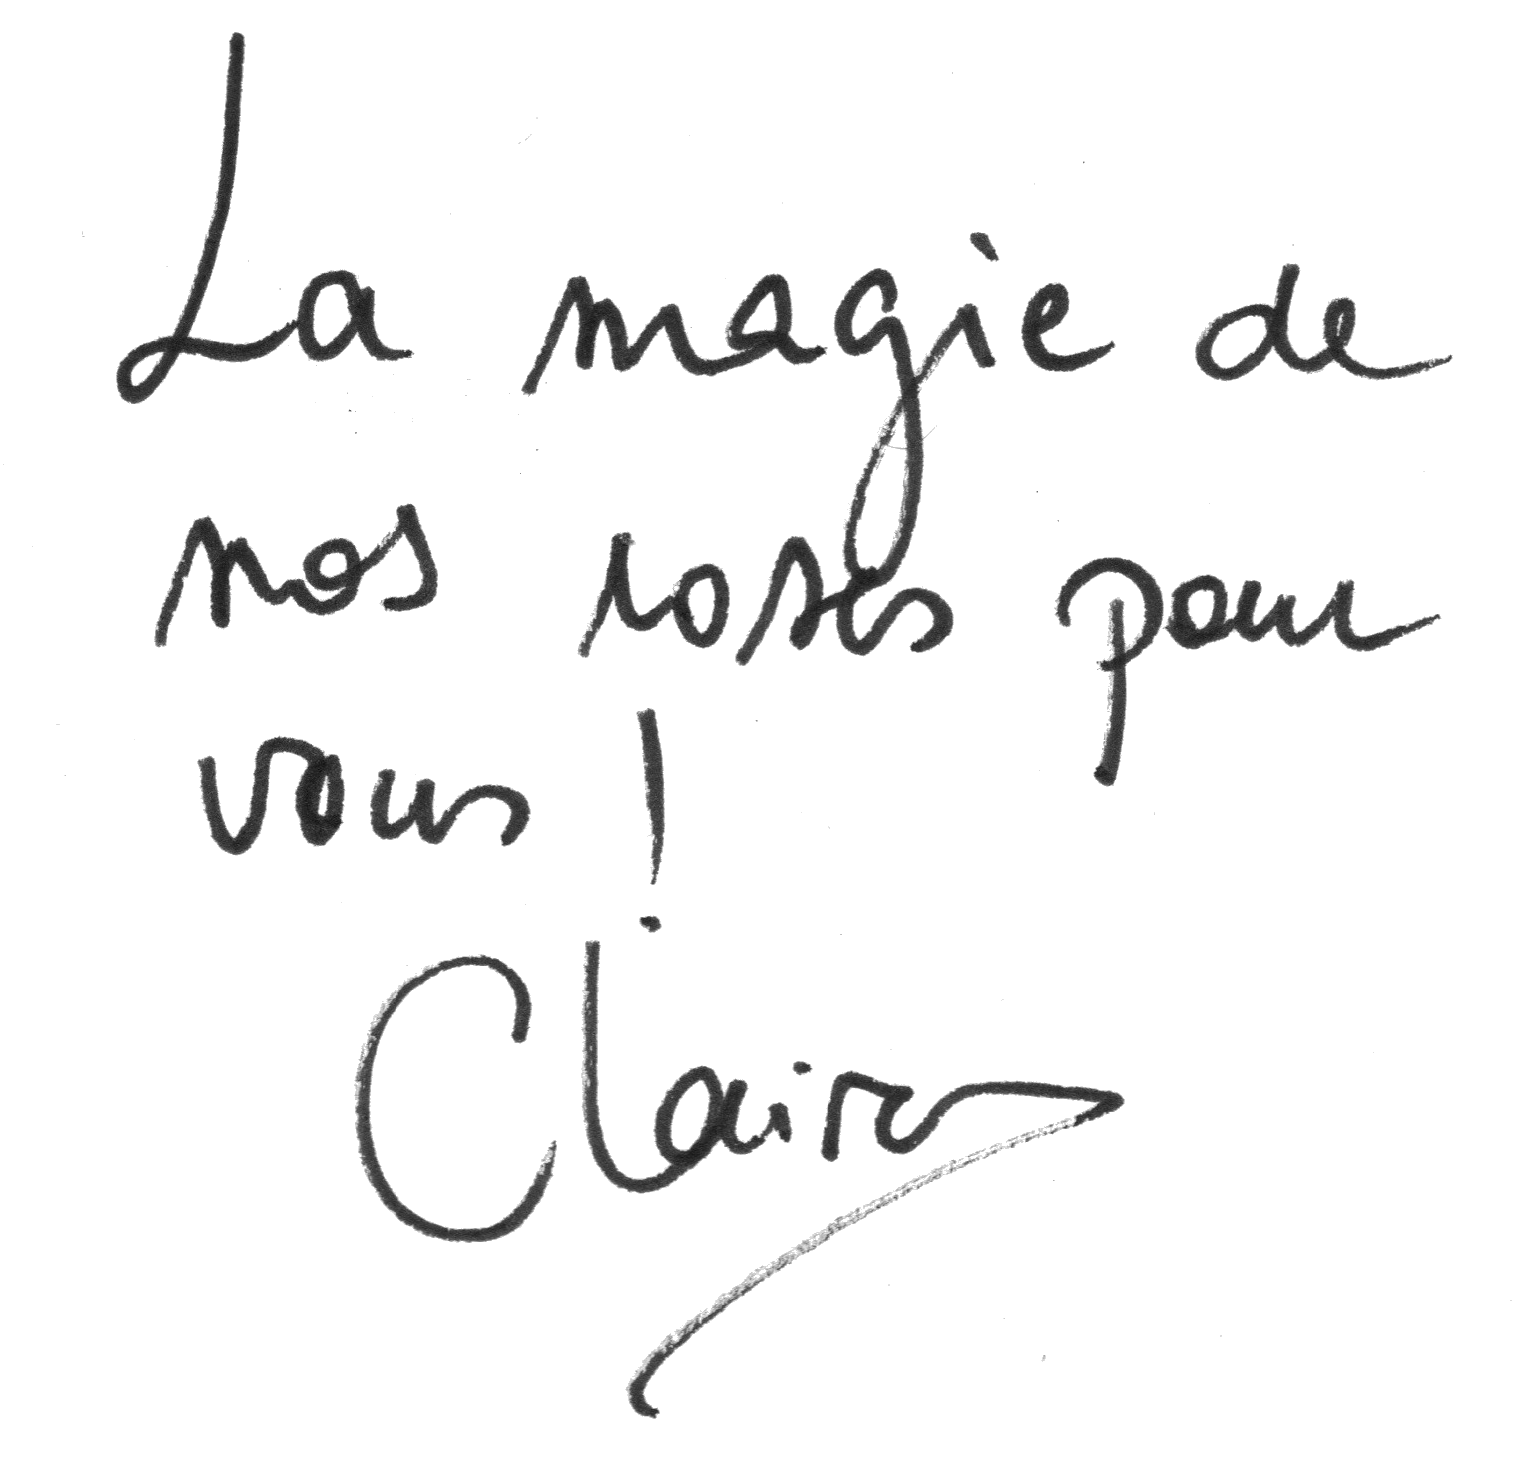 La magie de
nos roses pour
vous !
Claire